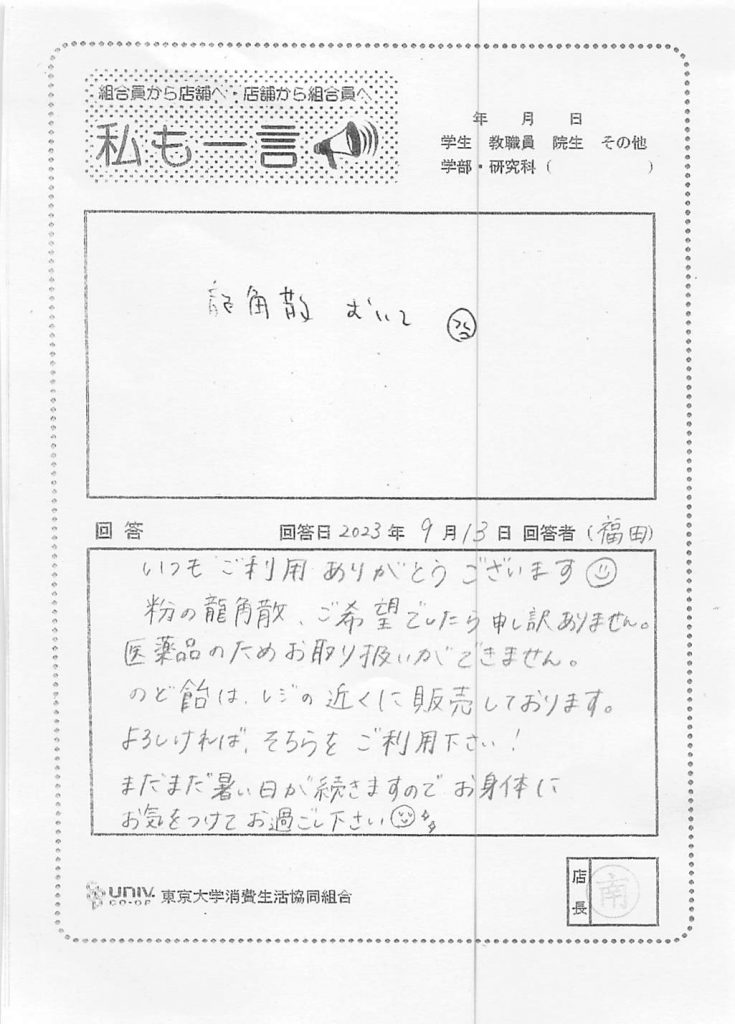 組合員から店舗へ・店舗から組合員へ
私も一言
年 月 日
学生 教職員 院生 その他
学部・研究科（ ）
龍角散 おいて
回答 回答日 2023年 9月13日 回答者（福田）
いつもご利用ありがとうございます
粉の龍角散、ご希望でしたら申し訳ありません。
医薬品のためお取り扱いができません。
のど飴は、レジの近くに販売しております。
よろしければ、そちらをご利用下さい！
まだまだ暑い日が続きますのでお身体に
お気をつけてお過ごし下さい
UNIV. CO-OP 東京大学消費生活協同組合
店長 南